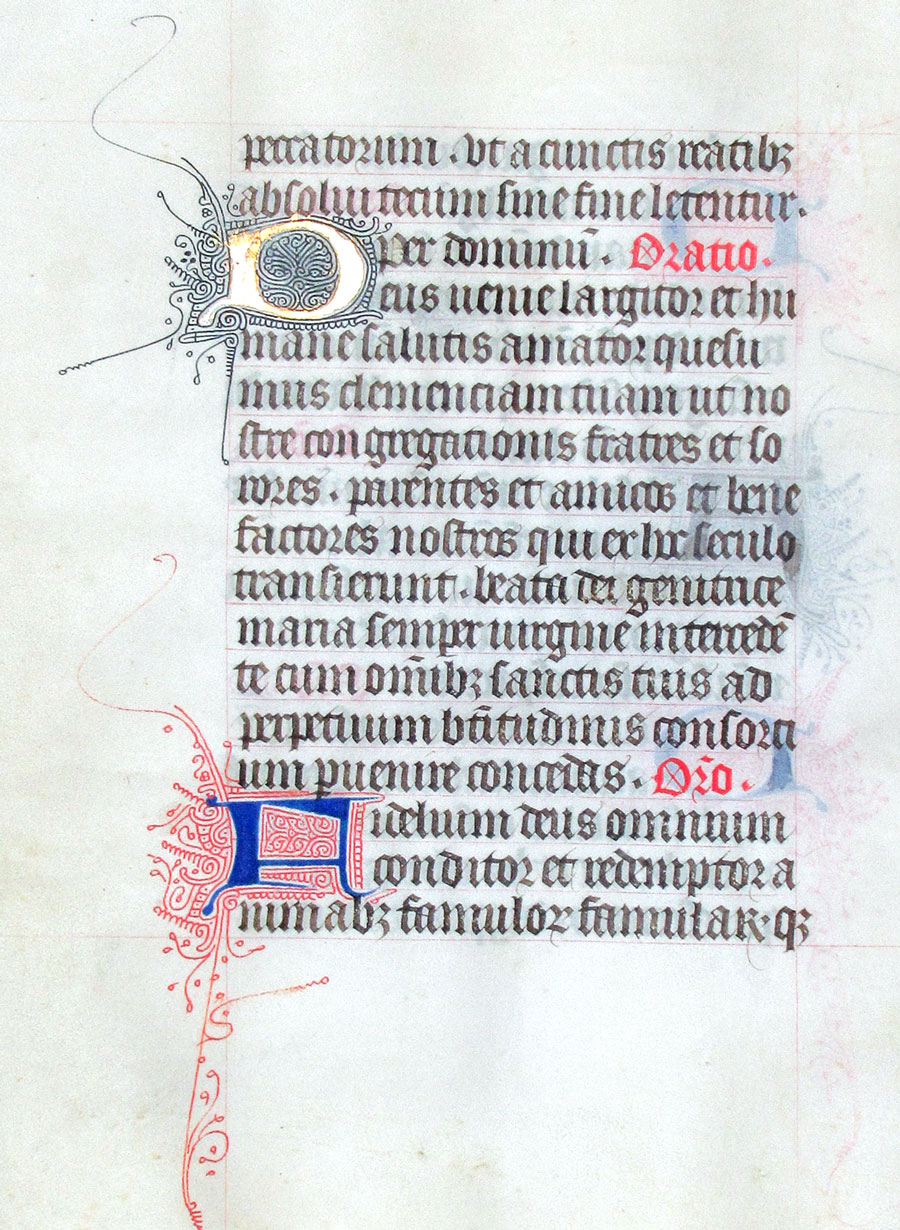 peccatorum . Ut a cunctis reatibꝫ
absoluti tecum sine fine letentur.
per dominū . Oratio.
Deus uenie largitor et hu
mane salutis amator quesu
mus clemenciam tuam ut no
stre congregationis fratres et so
rores . parentes et amicos et bene
factores nostros qui ex hoc seculo
transierunt . beata dei genitrice
maria semper uirgine intercedē
te cum omībꝫ sanctis tuis ad
perpetuum btītudinis consorti
um ꝑuenire concedas . Orō.
Fidelium deus omnium
conditor et redemptor a
nimabꝫ famuloꝝ famulaꝝ qꝫ